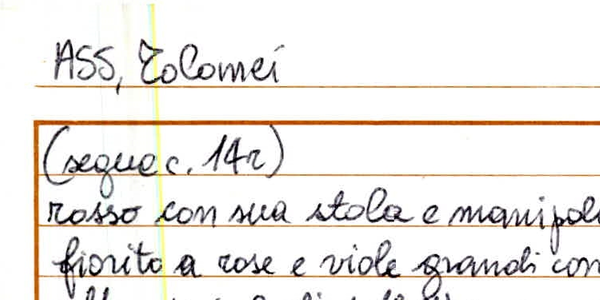 ASS, Tolomei
(segue c. 14r)
rosso con sua stola e manipol
fiorito a rose e viole grandi con